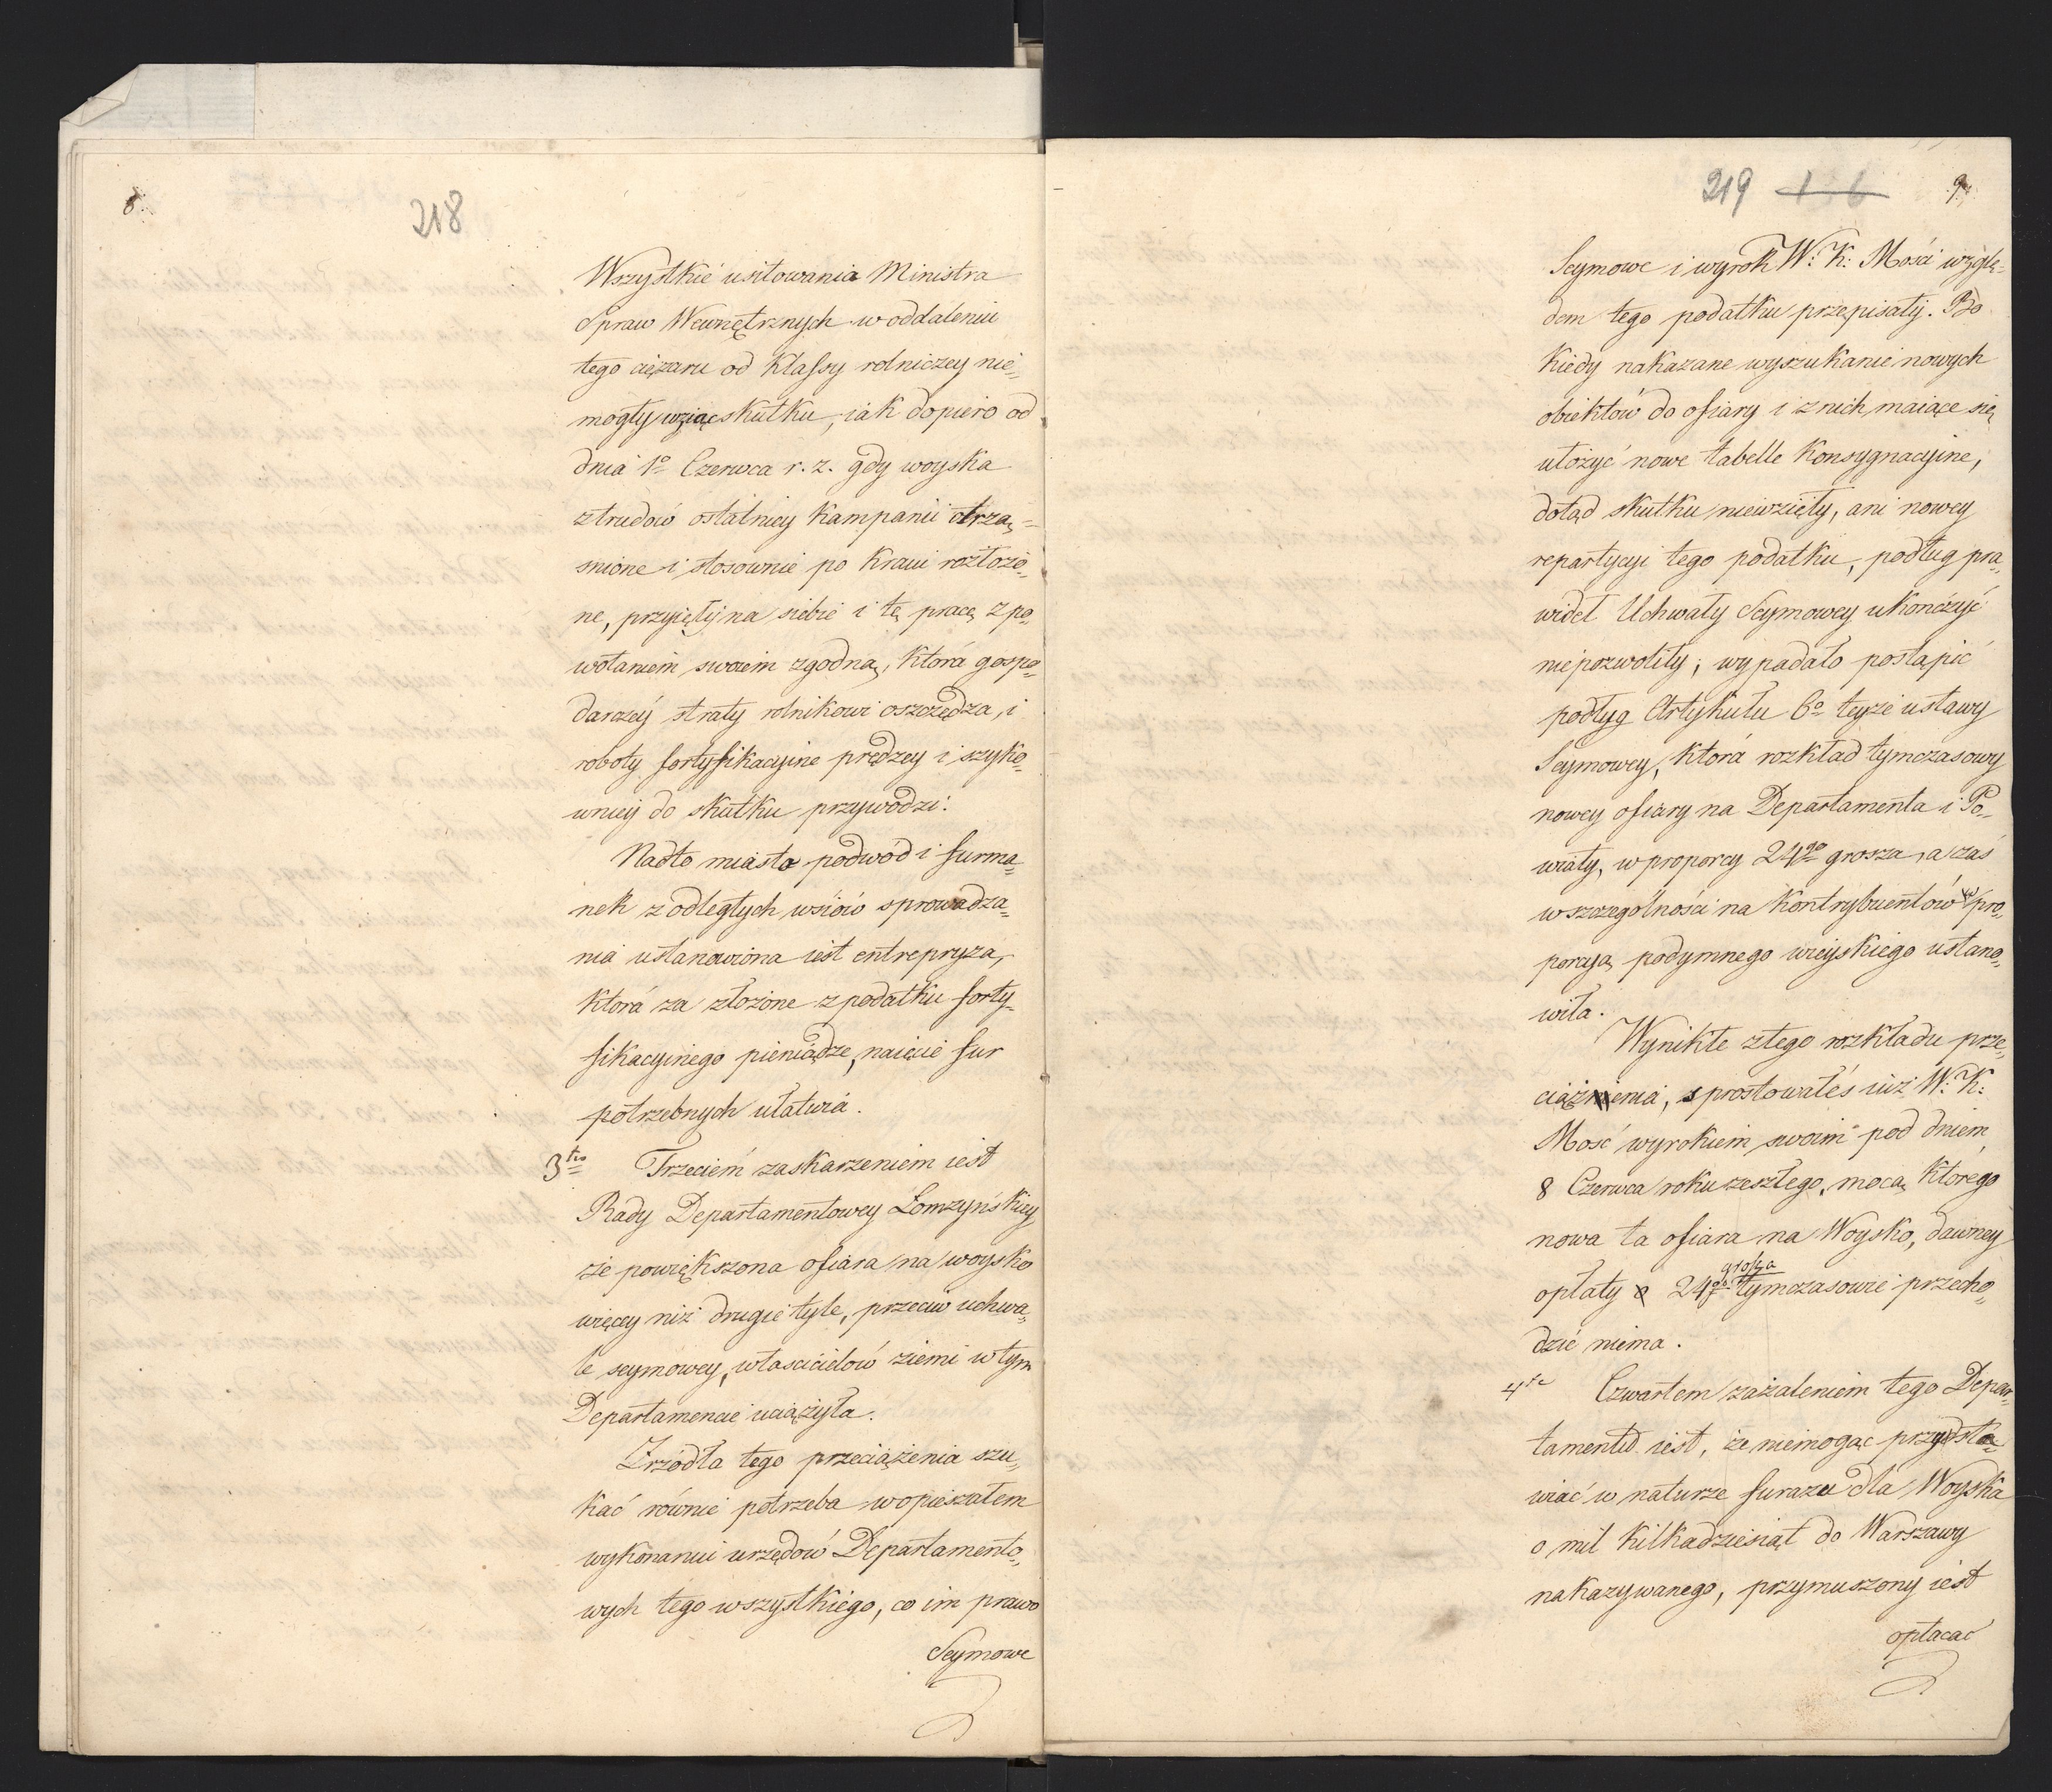 8.
218
Wszystkie usiłowania Ministra
Spraw Wewnętrznych w oddaleniu
tego ciężaru od Klassy rolniczey nie=
mogły wziąć skutku, iak dopiero od
dnia 1o Czerwca r. z. gdy woyska
z trudów ostatniey Kampanii otrzą=
snione i stosownie po Kraiu rozłożo=
ne, przyięły na siebie i tę pracę z po=
wołaniem swoiem zgodną, która gospo=
darczey straty rolnikowi oszczędza, i
roboty fortyfikacyine prędzey i szyko=
wniey do skutku przywodzi.
Nadto miasto podwód i furma=
nek z odległych wsiów sprowadza=
nia ustanowiona iest entrepryza,
która za złożone z podatku forty=
fikacyinego pieniądze, naięcie fur
potrzebnych ułatwia.
3tio Trzeciem zaskarzeniem iest
Rady Departamentowey Łomzyńskiey
że powiększona ofiara na woysko
więcey niż drugie tyle, przeciw uchwa=
le seymowey, właścicielów ziemi w tym
Departamencie uciążyła.
Zrzódła tego przeciążenia szu=
kać równie potrzeba w opieszałem
wykonaniu urzędów Departamento=
wych tego wszystkiego, co im prawo
Seymowe
219 16 9.
Seymowe i wyrok W: K: Mości wzglę=
dem tego podatku przepisały. Bo
Kiedy nakazane wyszukanie nowych
obiektów do ofiary i z nich maiące się
ułożyć nowe tabelle Konsygnacyine,
dotąd skutku niewzięły, ani nowey
repartycyi tego podatku, podług pra=
wideł Uchwały Seymowey ukończyć
niepozwoliły; wypadało postąpić
podług Artykułu 6o teyże ustawy
Seymowey, która rozkład tymczasowy
nowey ofiary na Departamenta i Po=
wiaty, w proporcy 24go grosza, a zaś
w szczególności na Kontrybuentów w pro=
porcyą podymnego wieyskiego ustano=
wiła.
Wynikłe z tego rozkładu prze=
ciążenia, sprostowałeś iuż W: K:
Mość wyrokiem swoim pod dniem
8 Czerwca roku zeszłego, mocą którego
nowa ta ofiara na Woysko, dawney
opłaty 24go grosza tymczasowie przecho=
dzić niema.
4te Czwartem zażaleniem tego Depar=
tamentu iest, że niemogąc przysta=
wiać w naturze furażu dla Woyska
o mil kilkadziesiąt do Warszawy
nakazywanego, przymuszony iest
opłacać